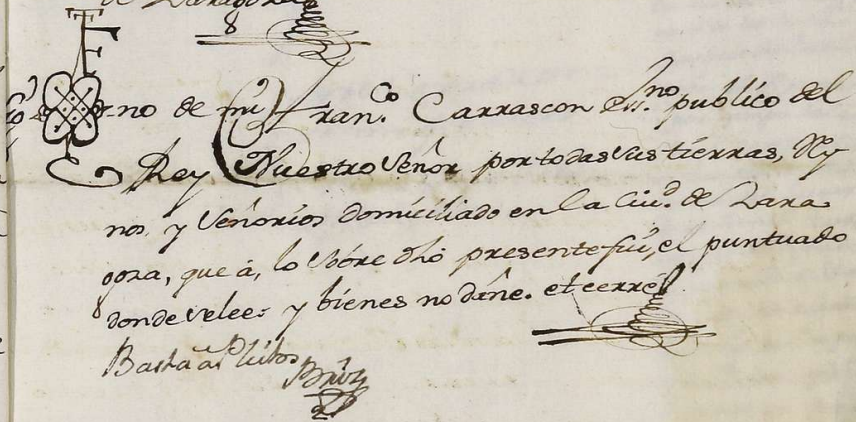 de Zaragoza
Sig-no de mi Fran.co Carrascon Ess.no publico del
Rey Nuestro Señor por todas sus tierras, Rey
nos, y Señorios domiciliado en la Ciu.d de Zara
goza, que à, lo sôbre dhô presente fui, el puntuado
donde se lee: y bienes no dañe. et cerrê
Basta